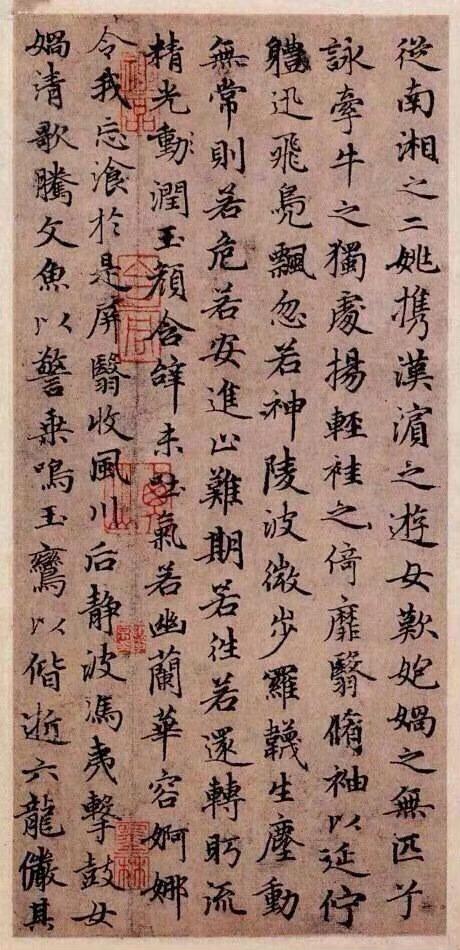 從南湘之二姚携漢濱之游女歎匏媧之無匹兮
詠牽牛之獨處揚輕袿之倚靡翳脩袖以延佇
體迅飛鳧飄忽若神陵波微步羅韈生塵動
無常則若危若安進止難期若往若還轉眄流
精光動潤玉顏含辭未吐氣若幽蘭華容婀娜
令我忘飡於是屏翳收風川后静波馮夷擊鼓女
媧清歌騰文魚以警乗鳴玉鸞以偕逝六龍儼其